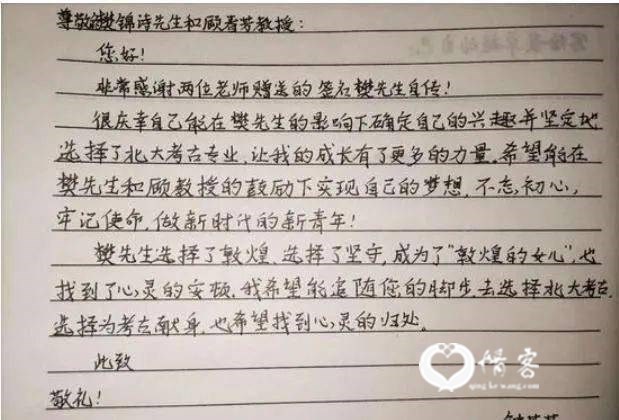 尊敬的樊锦诗先生和顾春芳教授：
您好！
非常感谢两位老师赠送的签名樊先生自传！
很庆幸自己能在樊先生的影响下确定自己的兴趣并坚定地
选择了北大考古专业，让我的成长有了更多的力量。希望能在
樊先生和顾教授的鼓励下实现自己的梦想，不忘初心，
牢记使命，做新时代的新青年！
樊先生选择了敦煌，选择了坚守，成为了“敦煌的女儿”，也
找到了心灵的安顿。我希望能追随您的脚步，去选择北大考古，
选择为考古献身，也希望找到心灵的归处。
此致
敬礼！
情客
qing ke wang.com